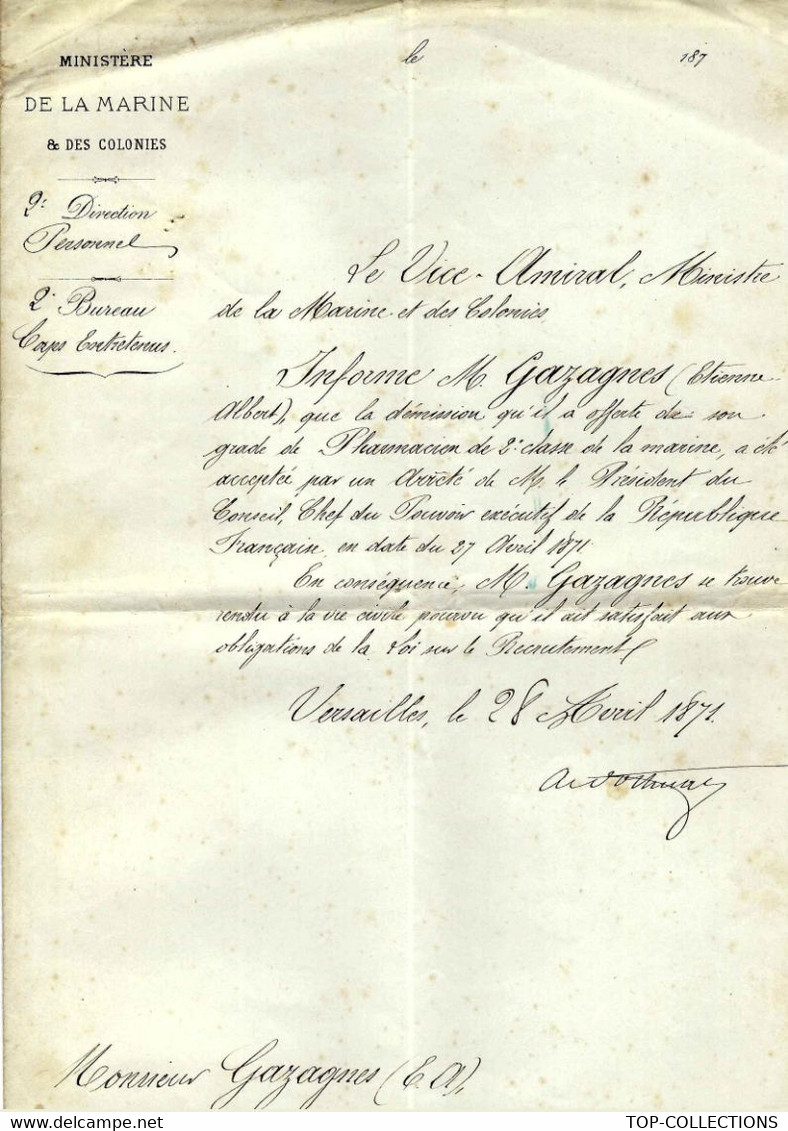 MINISTÈRE
DE LA MARINE
& DES COLONIES
le 187
2e Direction
Personnel
2e Bureau
Corps Entretenus.
Le Vice-Amiral, Ministre
de la Marine et des Colonies,
Informe M. Gazagnes (Etienne
Albert), que la démission qu'il a offerte de son
grade de Pharmacien de 2e classe de la marine, a été
acceptée par un Arrêté de M. le Président du
Conseil, Chef du Pouvoir exécutif de la République
Française, en date du 27 Avril 1871.
En conséquence, M. Gazagnes se trouve
rendu à la vie civile pourvu qu'il ait satisfait aux
obligations de la Loi sur le Recrutement
Versailles, le 28 Avril 1871.
Monsieur Gazagnes (E. A),
delcampe.net
TOP-COLLECTIONS